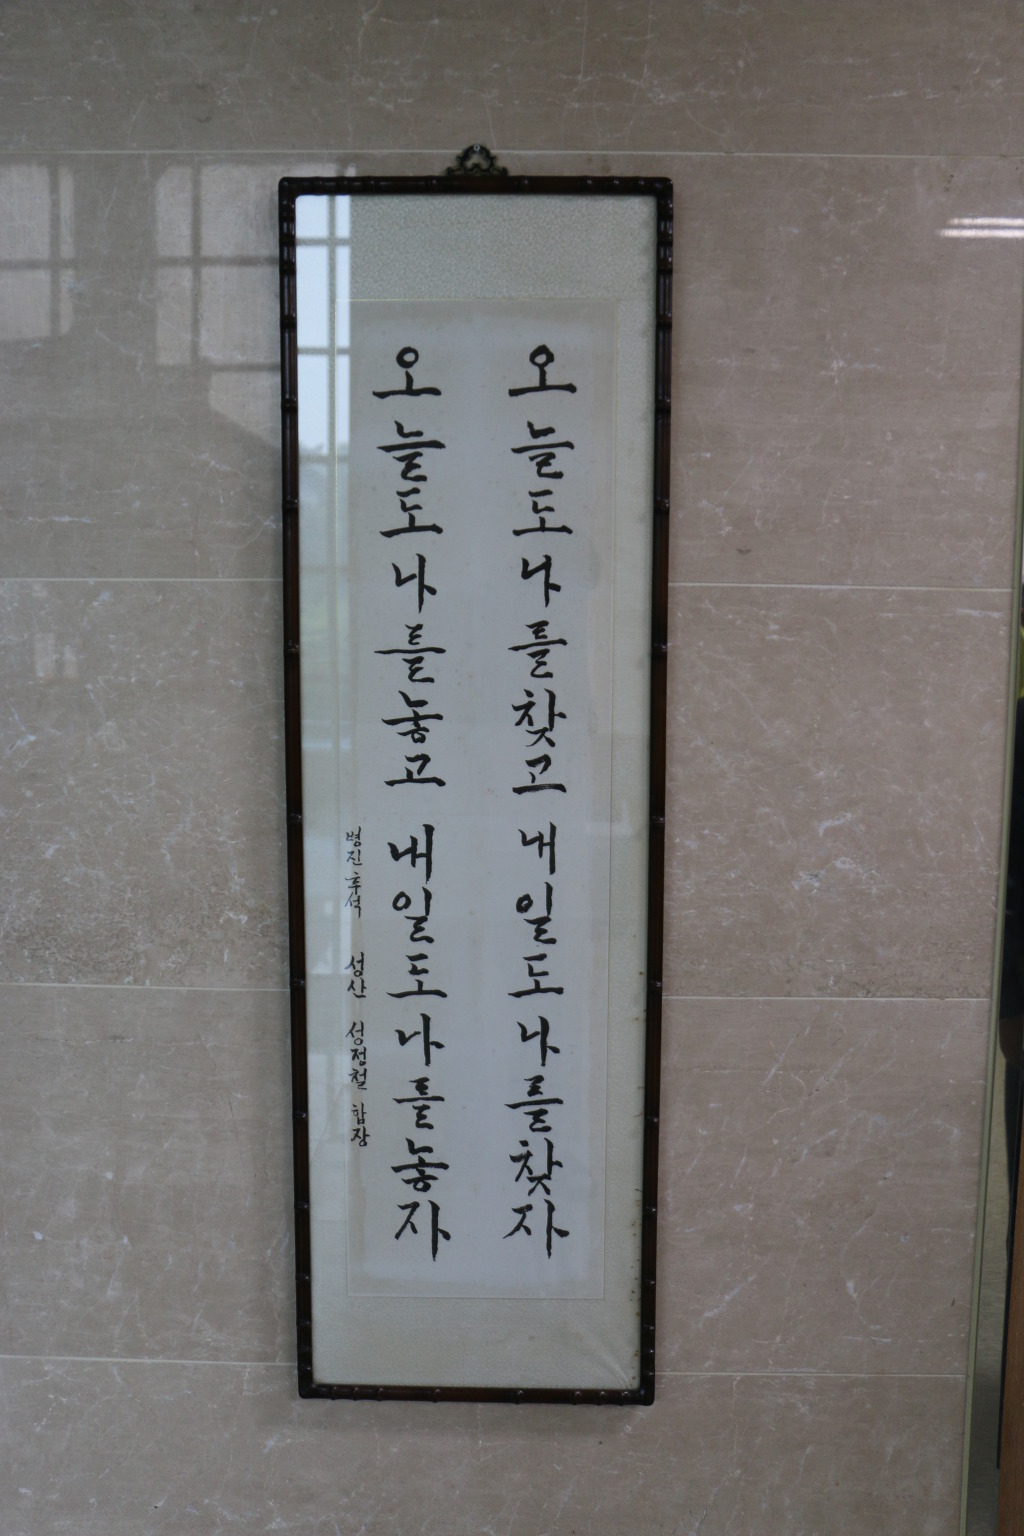 오늘도 나를 찾고 내일도 나를 찾자
오늘도 나를 놓고 내일도 나를 놓자
병진 추석 성산 성정철 합장